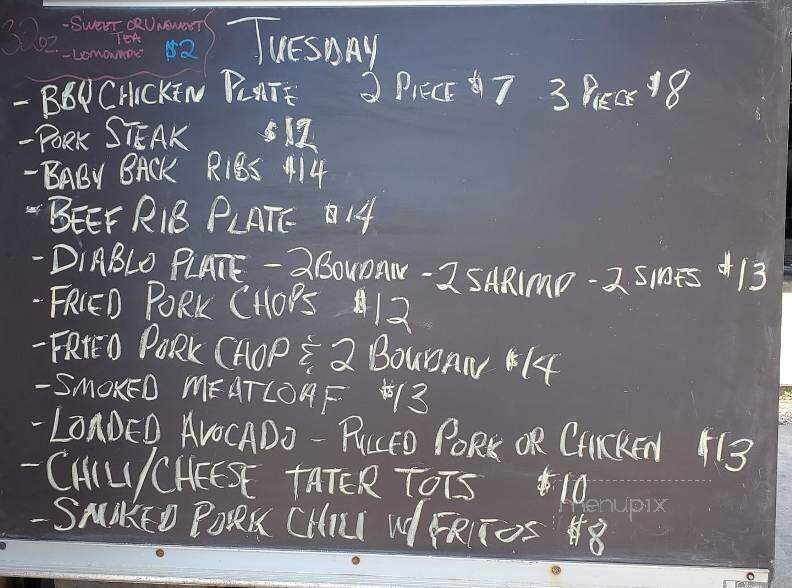 32oz
-SWEET OR UNSWEET
TEA
-LEMONADE $2
TUESDAY
- BBQ CHICKEN PLATE 2 PIECE $7 3 PIECE $8
- PORK STEAK $12
- BABY BACK RIBS $14
- BEEF RIB PLATE $14
- DIABLO PLATE - 2 BOUDAIN - 2 SHRIMP - 2 SIDES $13
- FRIED PORK CHOPS $12
- FRIED PORK CHOP & 2 BOUDAIN $14
- SMOKED MEATLOAF $13
- LOADED AVOCADO - PULLED PORK OR CHICKEN $13
- CHILI/CHEESE TATER TOTS $10
- SMOKED PORK CHILI W/ FRITOS $8
menupix